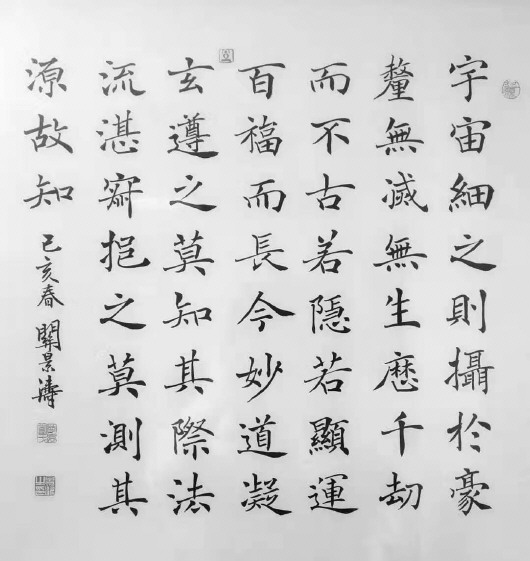 宇宙細之則攝於豪
釐無滅無生歷千劫
而不古若隱若顯運
百福而長今妙道凝
玄遵之莫知其際法
流湛寂挹之莫測其
源故知
己亥春 關景濤